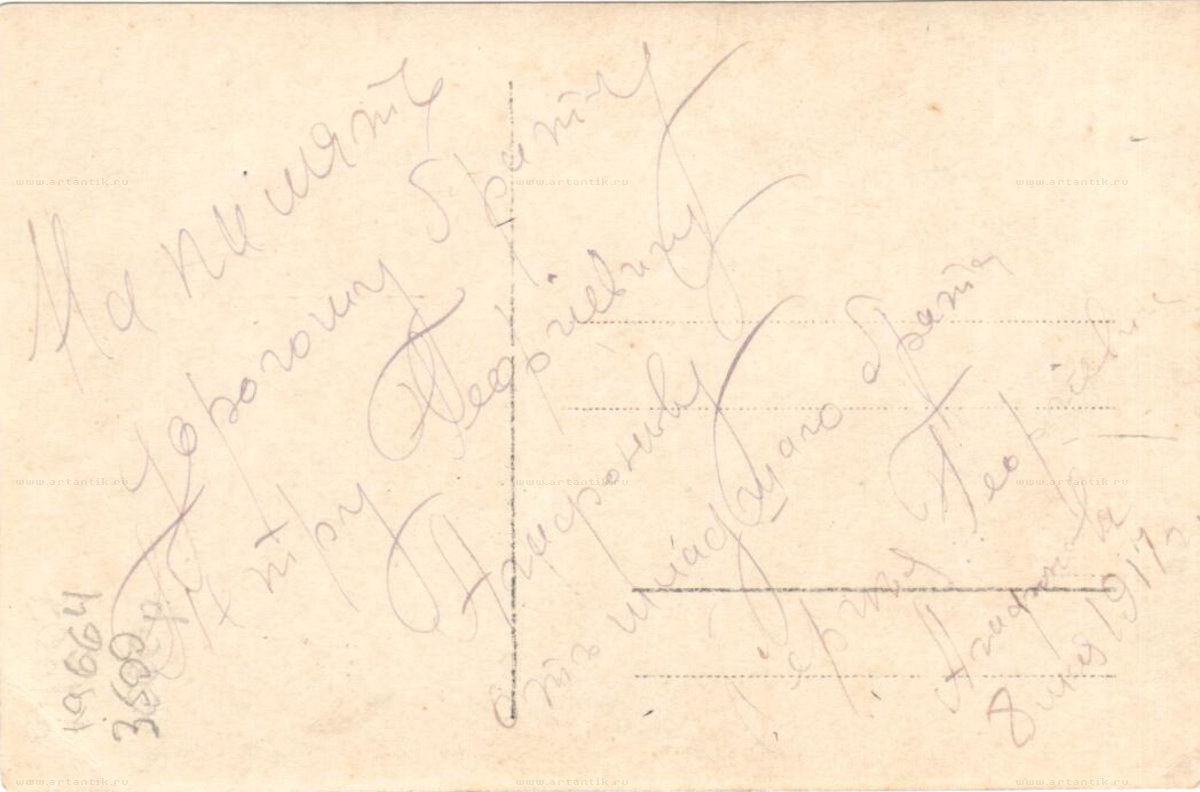 www.artantik.ru www.artantik.ru www.artantik.ru
На память
Дорогому брату
Петру Георгіевичу
Агафонову
отъ младшаго брата
Георгіевич
Агафонова
8 мая 1917 г
19664
www.artantik.ru www.artantik.ru www.artantik.ru
www.artantik.ru www.artantik.ru www.artantik.ru